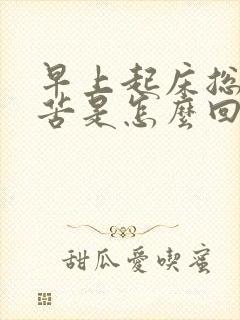 早上起床总
苦是怎麼回
甜瓜愛喫蜜